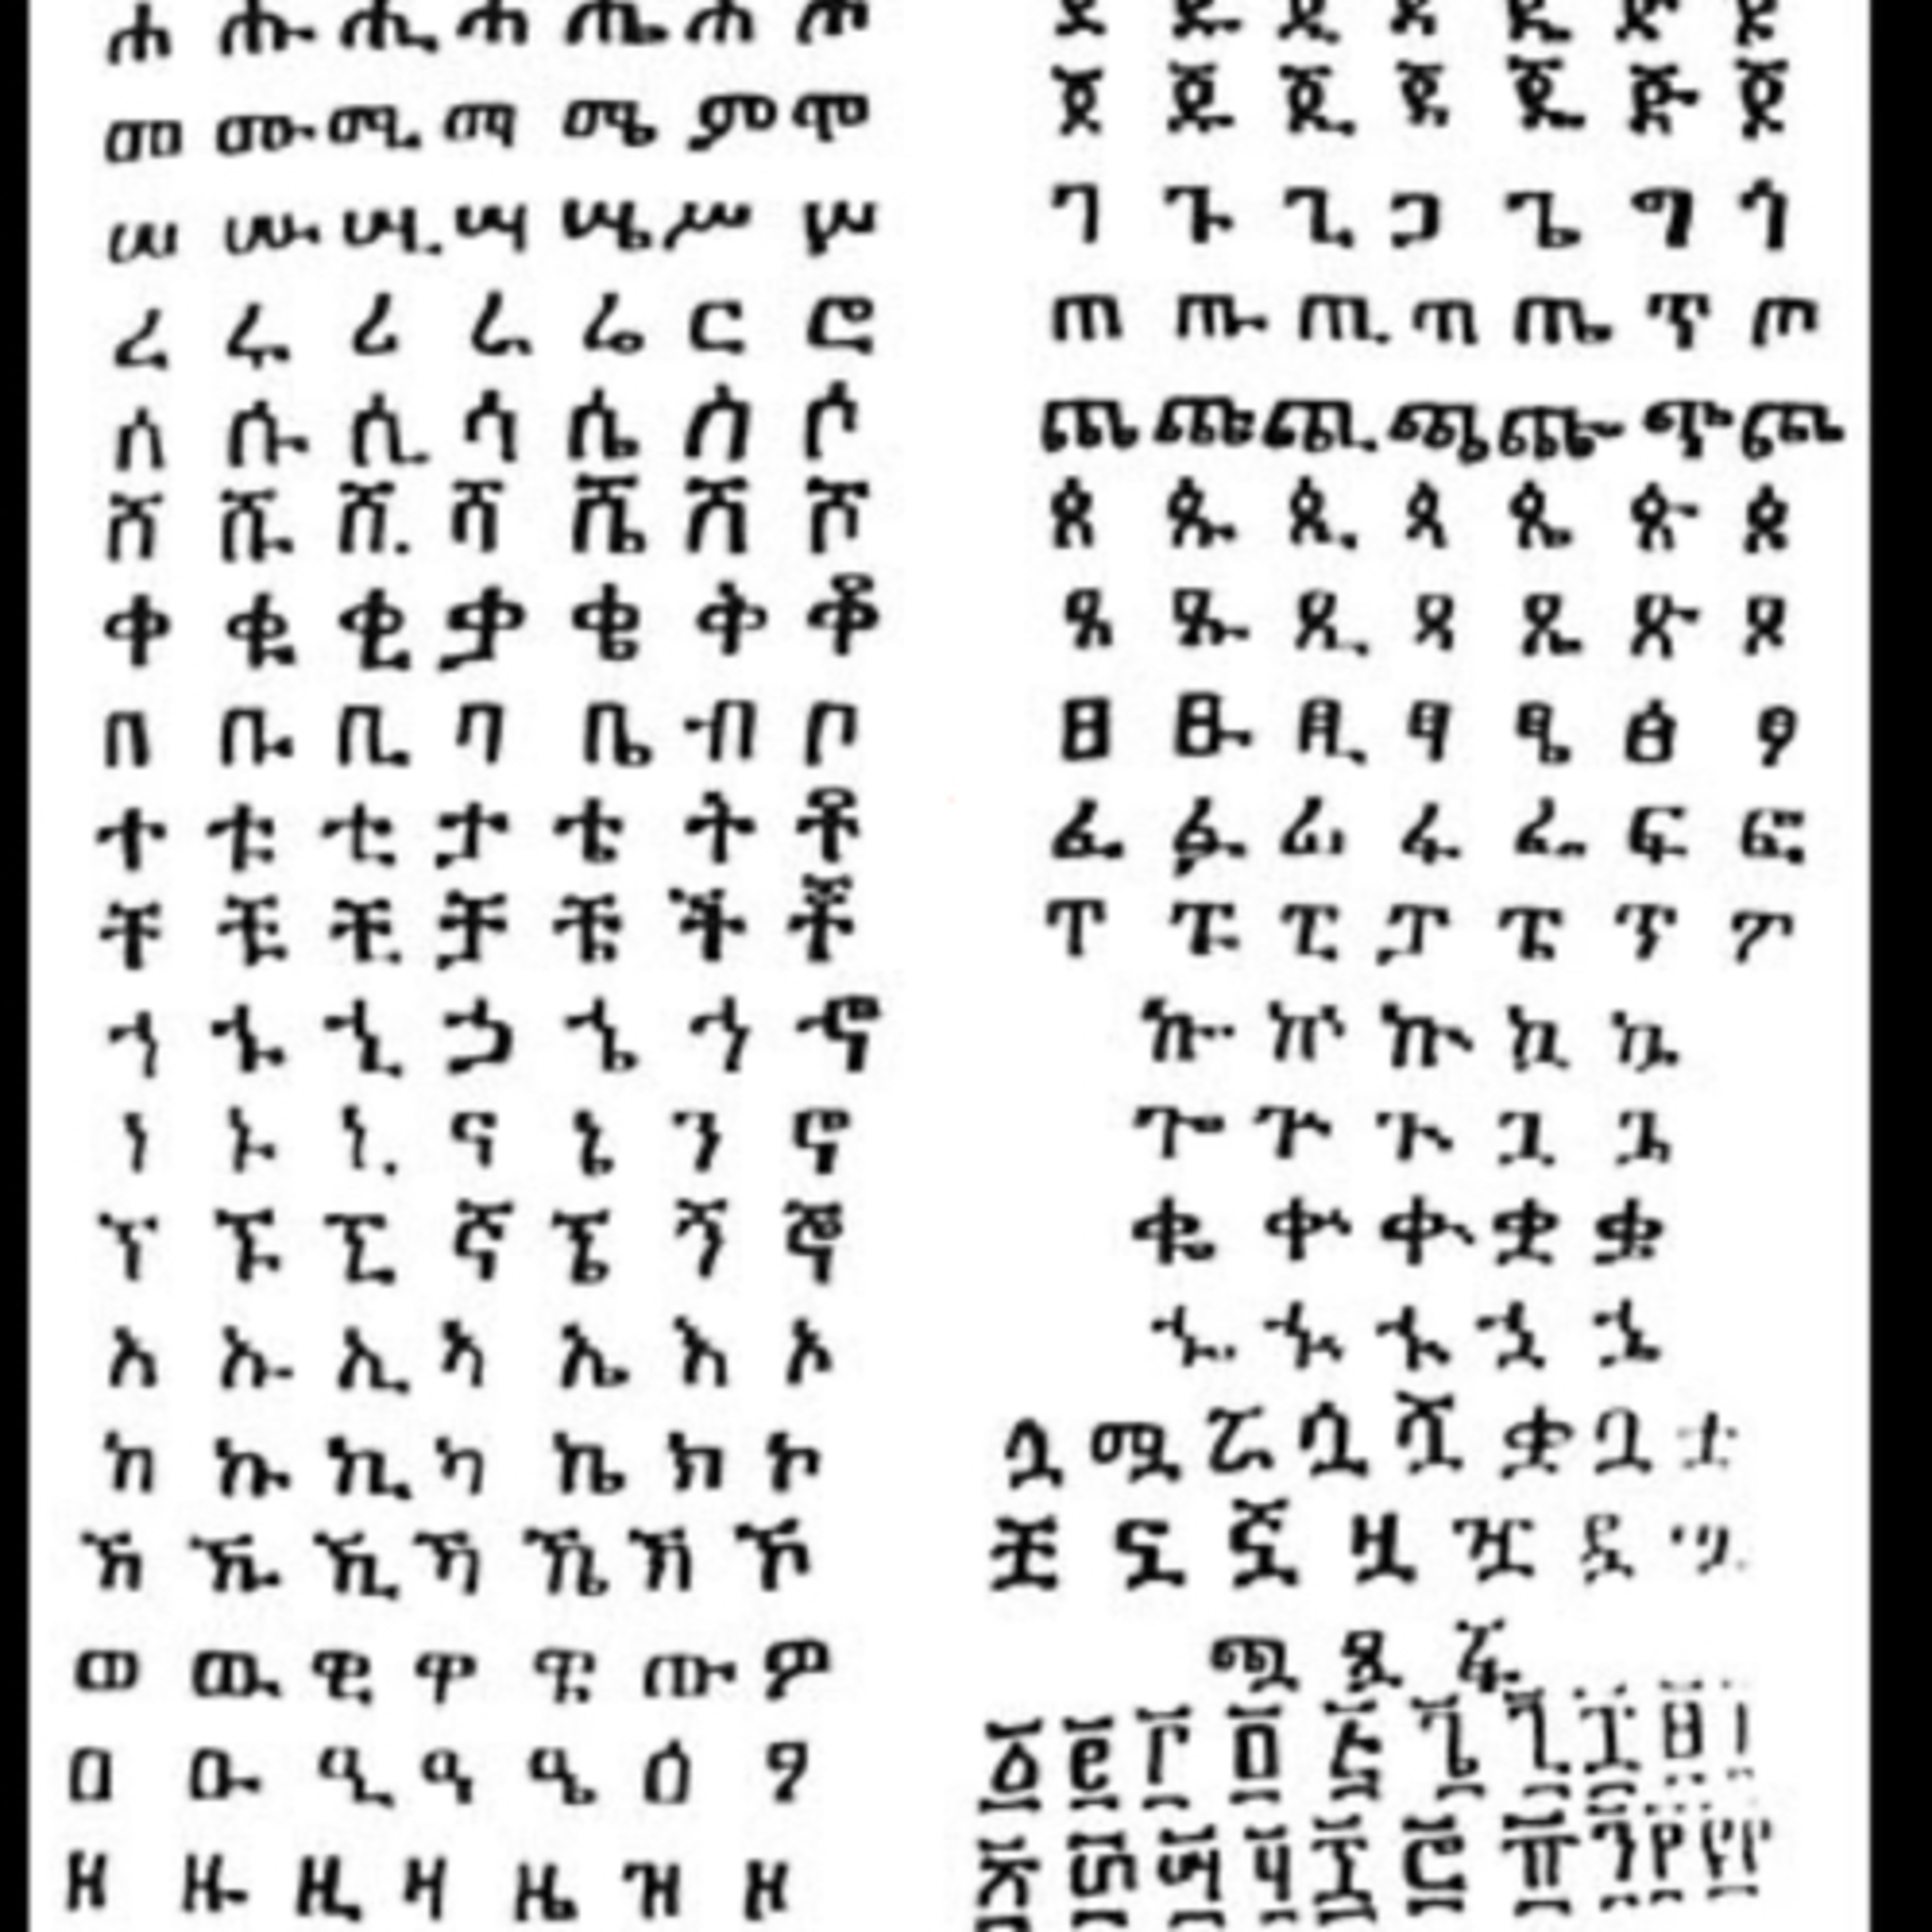 ሐ ሑ ሒ ሓ ሔ ሐ ሖ
መ ሙ ሚ ማ ሜ ም ሞ
ሠ ሡ ሢ ሣ ሤ ሥ ሦ
ረ ሩ ሪ ራ ሬ ር ሮ
ሰ ሱ ሲ ሳ ሴ ስ ሶ
ሸ ሹ ሺ ሻ ሼ ሽ ሾ
ቀ ቁ ቂ ቃ ቄ ቅ ቆ
በ ቡ ቢ ባ ቤ ብ ቦ
ተ ቱ ቲ ታ ቴ ት ቶ
ቸ ቹ ቺ ቻ ቼ ች ቾ
ኀ ኁ ኂ ኃ ኄ ኅ ኆ
ነ ኑ ኒ ና ኔ ን ኖ
ኘ ኙ ኚ ኛ ኜ ኝ ኞ
አ ኡ ኢ ኣ ኤ እ ኦ
ከ ኩ ኪ ካ ኬ ክ ኮ
ኸ ኹ ኺ ኻ ኼ ኽ ኾ
ወ ዉ ዊ ዋ ዌ ው ዎ
ዐ ዑ ዒ ዓ ዔ ዕ ዖ
ዘ ዙ ዚ ዛ ዜ ዝ ዞ
ደ ዱ ዲ ዳ ዴ ድ ዶ
ጀ ጁ ጂ ጃ ጄ ጅ ጆ
ገ ጉ ጊ ጋ ጌ ግ ጎ
ጠ ጡ ጢ ጣ ጤ ጥ ጦ
ጨ ጩ ጪ ጫ ጬ ጭ ጮ
ጰ ጱ ጲ ጳ ጴ ጵ ጶ
ጸ ጹ ጺ ጻ ጼ ጽ ጾ
ፀ ፁ ፂ ፃ ፄ ፅ ፆ
ፈ ፉ ፊ ፋ ፌ ፍ ፎ
ፐ ፑ ፒ ፓ ፔ ፕ ፖ
ኰ ኲ ኵ ኳ ኴ
ጐ ጒ ጕ ጓ ጔ
ቈ ቊ ቍ ቋ ቌ
ኈ ኊ ኍ ኋ ኌ
ሏ ሟ ሯ ሷ ሿ ቋ ቧ ቷ
ቿ ኗ ኟ ዟ ዧ ዷ
ጯ ጿ ፏ
፩ ፪ ፫ ፬ ፭ ፮ ፯ ፰ ፱ ፲